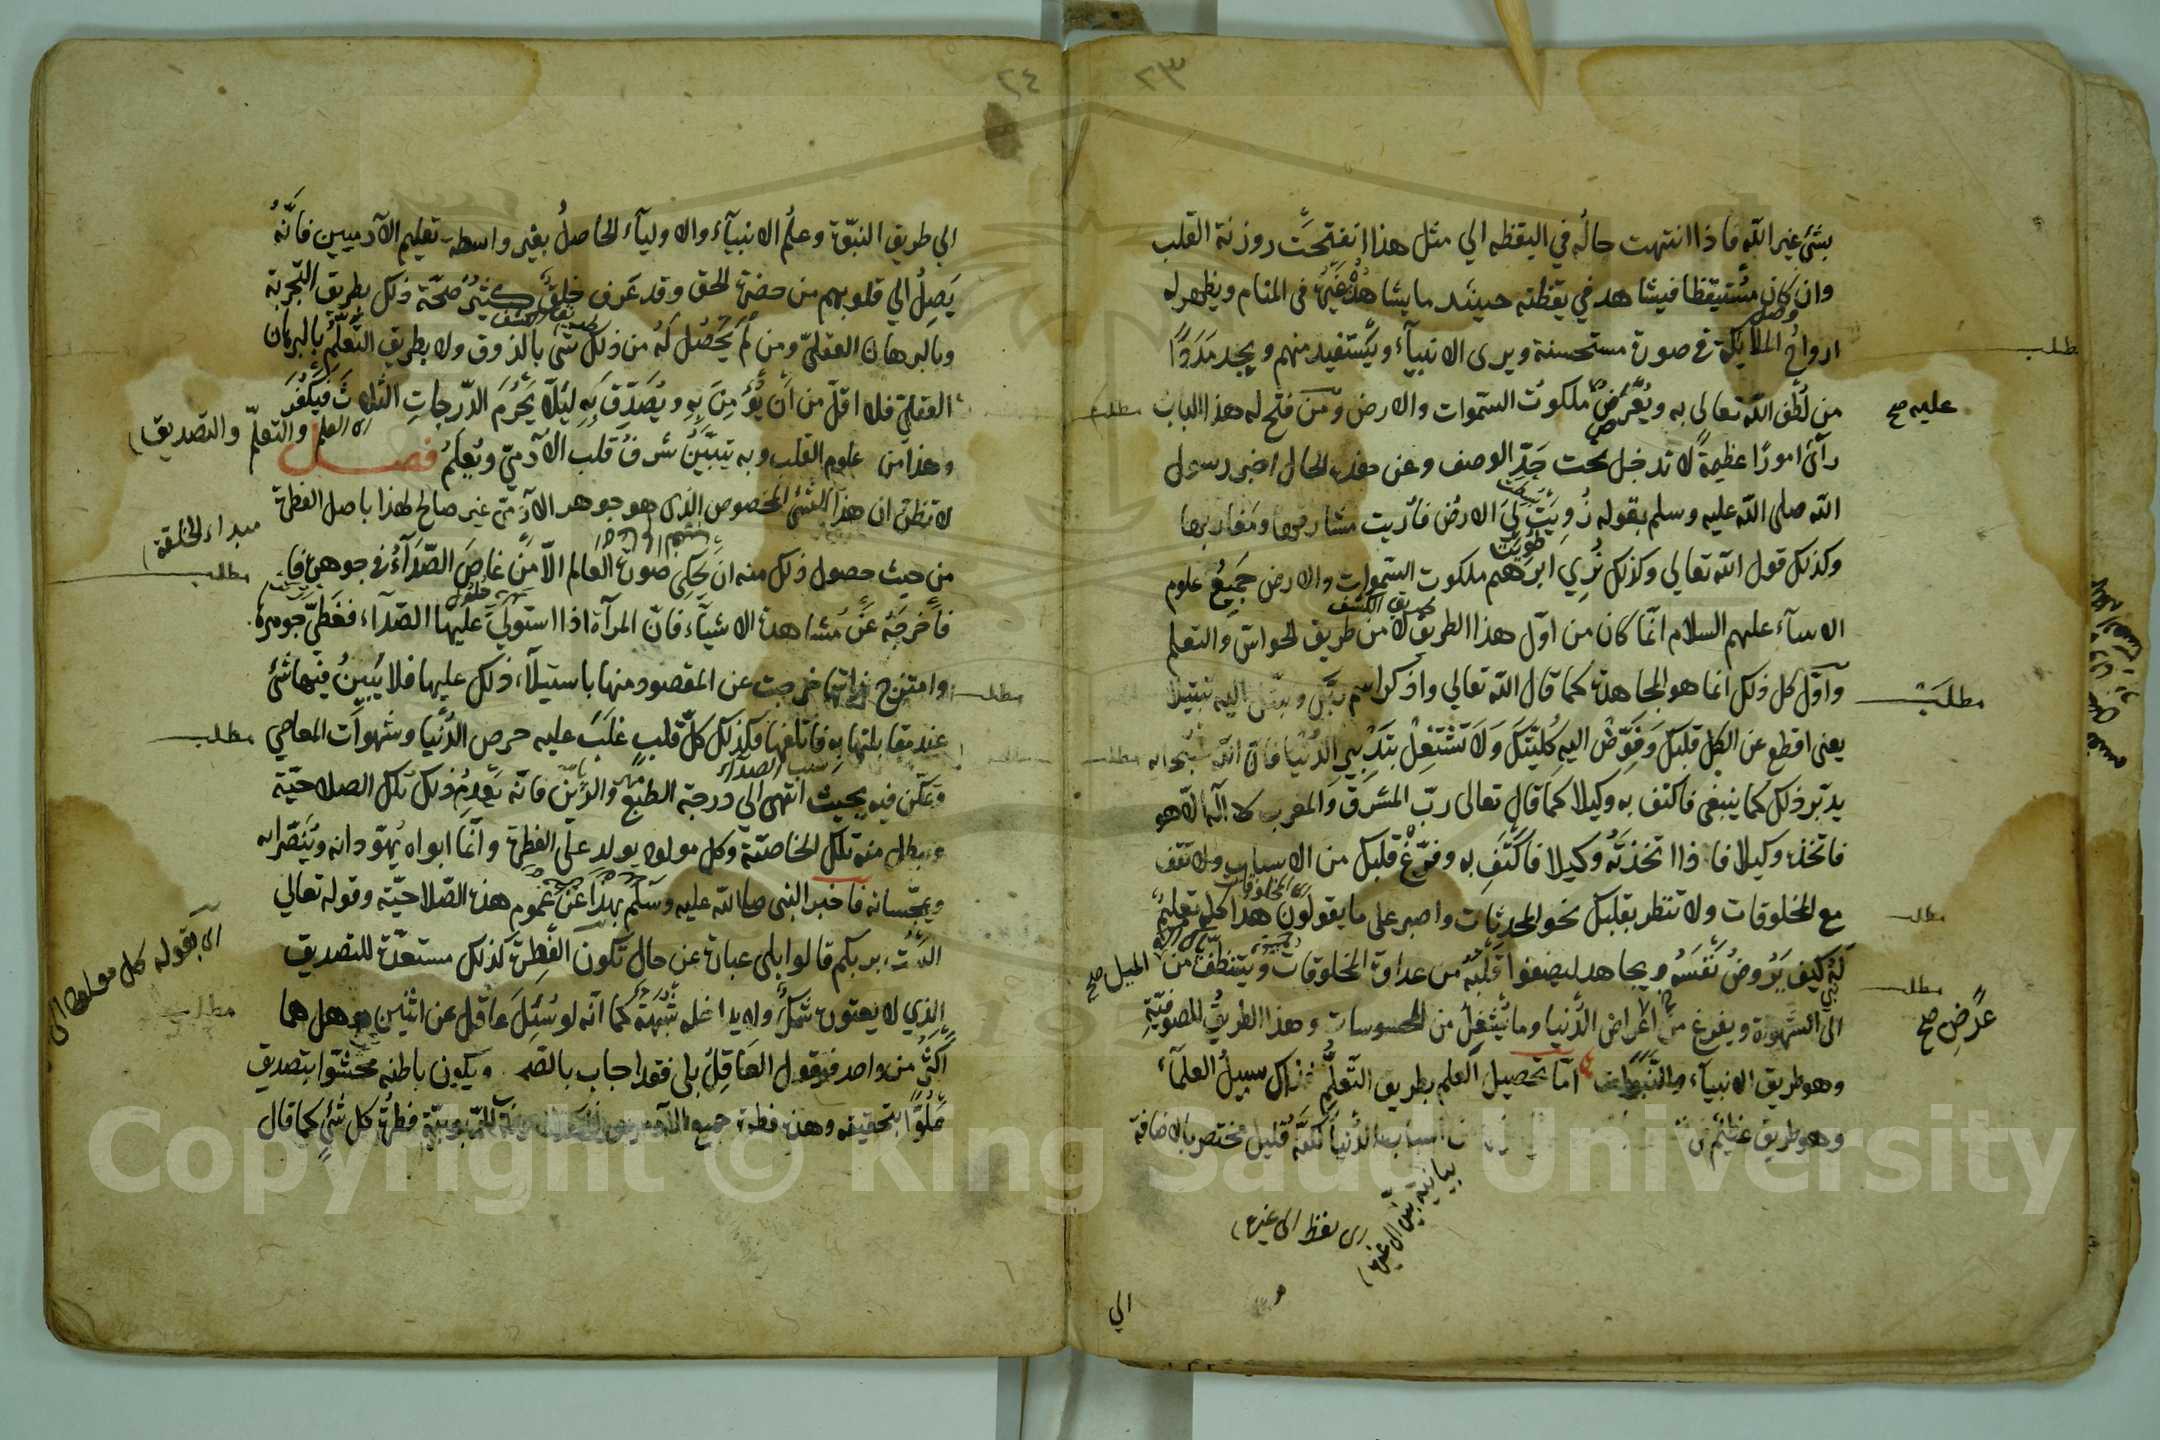 ٢٣
بشئ غير الله فاذا انتهت حاله في اليقظه الي مثل هذا انفتحت روزنة القلب
وان كان مستيقظا فيشاهد في يقظته حينئذ ما يشاهد غيره في المنام ويظهر له
ارواح الملائكة في صورة مستحسنة ويرى الانبياء ويستفيد منهم ويجد مددا
من لطف الله تعالي به ويعرض ملكوت السموات والارض ومن فتح له هذا الباب
عليه صح
رآى امورا عظيمة لا تدخل تحت حد الوصف وعن هذه الحال اخبر رسول
الله صلى الله عليه وسلم بقوله زويت لي الارض فأريت مشارقها ومغاربها
وكذلك قول الله تعالي وكذلك نري ابرهيم ملكوت السموات والارض جميع علوم
الانبياء عليهم السلام انما كان من اول هذا الطريق لا من طريق الحواس والتعلم
واول كل ذلك انما هو المجاهدة كما قال الله تعالي واذكر اسم ربك وتبتل اليه تبتيلا
مطلب
يعنى اقطع عن الكل قلبك وفوض اليه كليتك ولا تشتغل بتدبير الدنيا فان الله سبحانه
يدبر ذلك كما ينبغى فاكتف به وكيلا كما قال تعالى رب المشرق والمغرب لا اله الا هو
فاتخذه وكيلا فاذا اتخذته وكيلا فاكتف به وفرغ قلبك من الاسباب ولا تقف
مع المخلوقات ولا تنظر بقلبك نحو المحدثات واصبر على ما يقولون هذا كله تعليم
له كيف يروض نفسه ويجاهد ليصفوا قلبه من عداوة المخلوقات ويتنظف من الميل صح
الى الشهوة ويفرغ من اغراض الدنيا وما يشغل من المحسوسات وهذا الطريق للصوفية
عرض صح
وهو طريق الانبياء اما تحصيل العلم بطريق التعلم فذلك سبيل العلماء
وهو طريق عظيم اسباب الدنيا لكنه قليل مختصر بالاضافة
اى نفظ الى غيره
الي
٢٤
الي طريق النبوة وعلم الانبياء والاولياء الحاصل بغير واسطه تعليم الآدميين فانه
يصل الي قلوبهم من حضرة الحق وقد عرف خلق كثير صحة ذلك بطريق التجربة
وبالبرهان العقلي ومن لم يحصل له من ذلك شئ بالذوق ولا بطريق التعلم بالبرهان
العقلي فلا اقل من ان يؤمن به ويصدق به ليلا يحرم الدرجات الثلاث فيكفر
اى العلم والتعلم والتصديق
وهذا من علوم القلب وبه يتبين شرف قلب الآدمي ويعلم فصل
لا تظن ان هذا الشئ المخصوص الذى هو جوهر الآدمي غير صالح لهذا باصل الفطرة
مبداء الخلقة
من حيث حصول ذلك منه ان يحكي صورة العالم الا من غاص الصداء في جوهره فا
مطلب
فاخرجه عن مشاهدة الاشياء فان المرآة اذا استولي عليها الصداء فغطي جوهرها
وامتزج بذاتها خرجت عن المقصود منها باستيلاء ذلك عليها فلا يبين فيها شئ
عند مقابلتها به فاتلفها فكذلك كل قلب غلب عليه حرص الدنيا وشهوات المعاصي
مطلب
وتمكن فيه بحيث انتهى الي درجة الطبع والرين فانه يعدم ذلك تلك الصلاحية
وبطل منه تلك الخاصية وكل مولود يولد على الفطرة وانما ابواه يهودانه وينصرانه
ويمجسانه فاخبر النبى صلى الله عليه وسلم بهذا عن عموم هذه الصلاحية وقوله تعالي
الست بربكم قالوا بلى عبارة عن حال تكون الفطرة كذلك مستعدة للتصديق
اى بقوله كل مولود الى
الذي لا يعتوره شك ولا يداخله شبهة كما انه لو سئل عاقل عن اثنين هل هما
اكثر من واحد فيقول العاقل بلى فقد اجاب بالصدق ويكون باطنه محشوا بتصديق
مملوا بتحقيقه وهذه فطرة جميع الآدميين فطرة كل شئ كما قال
Copyright © King Saud University